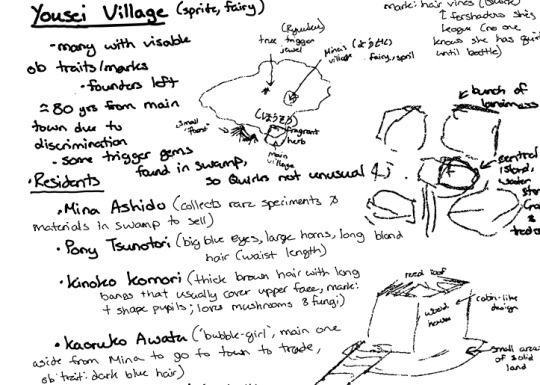 Yousei Village (sprite, fairy)
- many with visable
ob traits/marks
- founders left
≈ 80 yrs from main
town due to
discrimination
- some trigger gems
found in swamp,
so Quirks not unusual
(Ryuukyu)
true trigger
jewel
Mina's
village
fairy, spril
small
fragrant
herb
main
village
mark: hair vines
↑ forshadow she's
League (no one
knows she has
until battle)
bunch of
landmass
central
island,
water
• Residents
• Mina Ashido (collects rare speciments &
materials in swamp to sell)
• Pony Tsunotori (big blue eyes, large horns, long bland
hair (waist length)
• Kinoko Komori (thick brown hair with long
bangs that usually cover upper face, mark:
+ shape pupils; loves mushrooms & fungi)
• Kaoruko Awata ("bubble-girl", main one
aside from Mina to go to town to trade,
ob trait: dark blue hair)
reed roof
wood
house
cabin-like
design
small areas
of solid
land